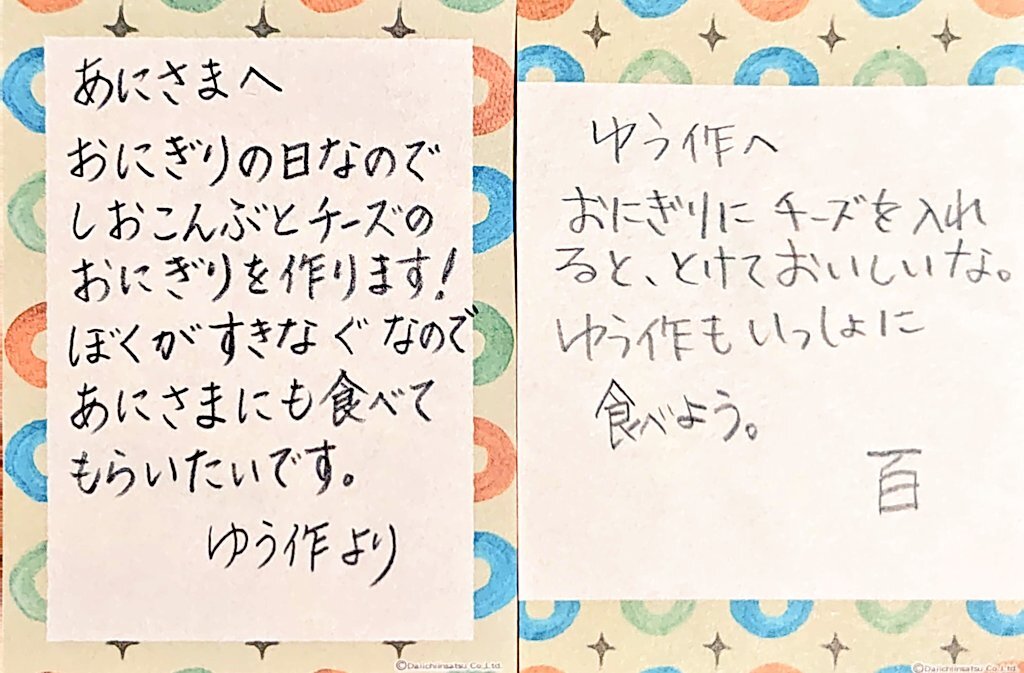 あにさまへ
おにぎりの日なので
しおこんぶとチーズの
おにぎりを作ります!
ぼくがすきなぐなので
あにさまにも食べて
もらいたいです。
ゆう作より
©Daiichiinsatsu Co.,Ltd.
ゆう作へ
おにぎりにチーズを入れ
ると、とけておいしいな。
ゆう作もいっしょに
食べよう。
百
©Daiichiinsatsu Co.,Ltd.